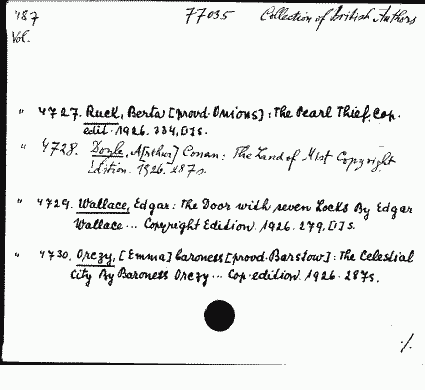 '187 77035 Collection of British Authors
Vol.
" 4727. Ruck, Berta [provd. Onions]: The Pearl Thief. Cop.
edit. 1926. 334, [1] s.
" 4728. Doyle, A[rthur] Conan: The Land of Mist Copyright
Edition. 1926. 287 s.
" 4729. Wallace, Edgar: The Door with seven Locks By Edgar
Wallace... Copyright Edition. 1926. 279, [1] s.
" 4730. Orczy, [Emma] baroness [provd. Barstow]: The Celestial
City By Baroness Orczy... Cop. edition. 1926. 287 s.
./.